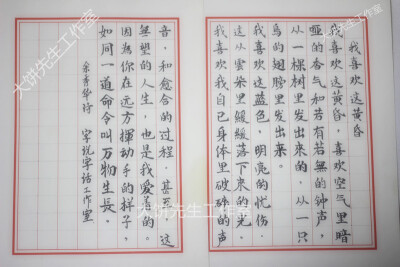 我喜欢这黄昏
我喜欢这黄昏，喜欢空气里暗
哑的香气和若有若無的钟声，
从一棵树里发出来的，从一只
鸟的翅膀里发出来。
我喜欢这蓝色，明亮的忧伤。
这从雲朵里缓缓落下来的光。
我喜欢我自己身体里破碎的声
音，和愈合的过程，甚至，这
無望的人生，也是我爱着的。
因為你在远方揮动手的样子，
如同一道命令叫万物生長。
余秀华诗 字说字话工作室
大饼先生工作室
大饼先生工作室
大饼先生工作室
大饼先生工作室